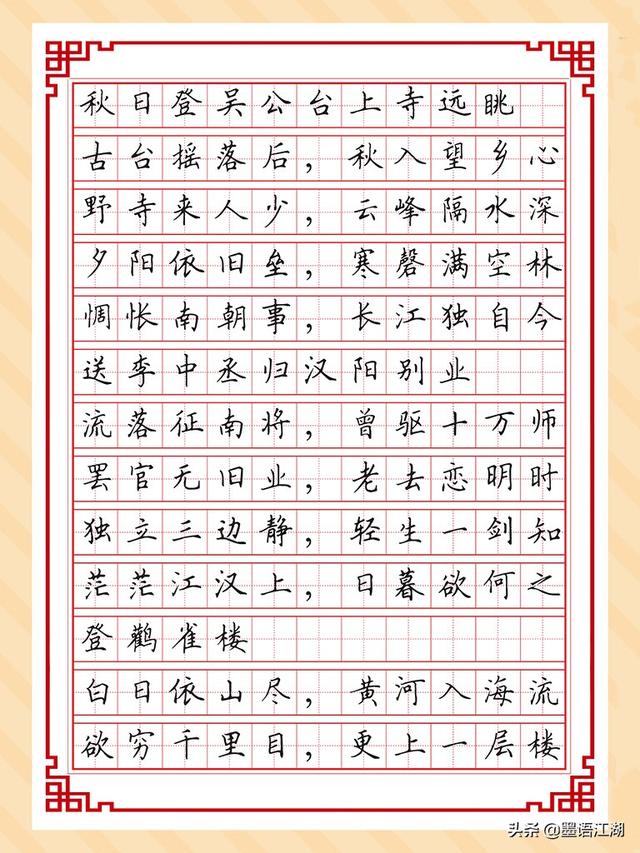 秋日登吴公台上寺远眺
古台摇落后，秋入望乡心
野寺来人少，云峰隔水深
夕阳依旧垒，寒磬满空林
惆怅南朝事，长江独自今
送李中丞归汉阳别业
流落征南将，曾驱十万师
罢官无旧业，老去恋明时
独立三边静，轻生一剑知
茫茫江汉上，日暮欲何之
登鹳雀楼
白日依山尽，黄河入海流
欲穷千里目，更上一层楼
头条@墨语江湖